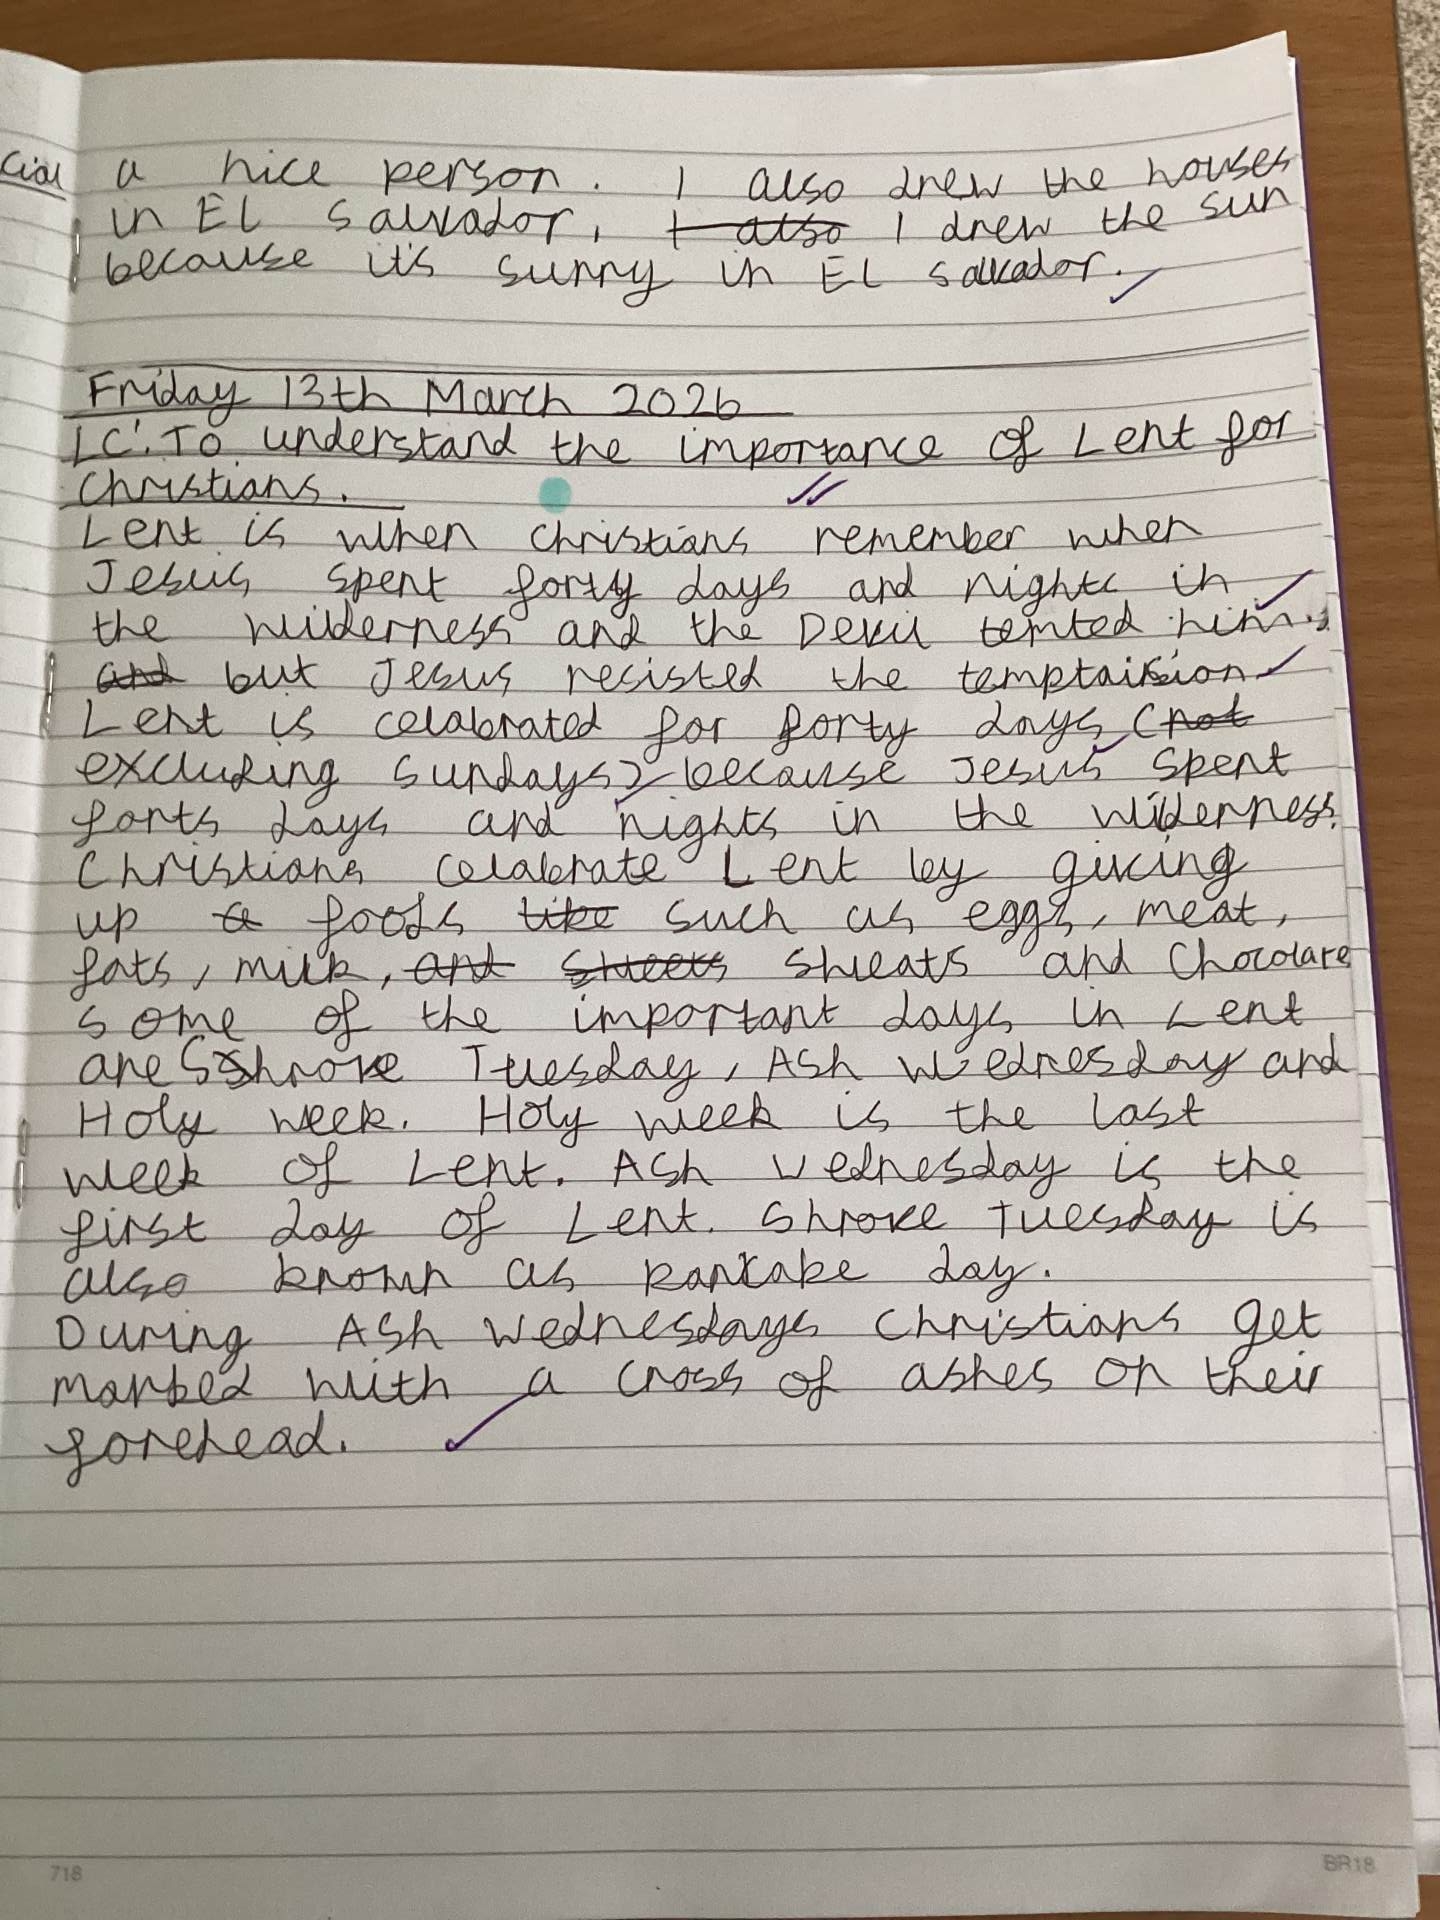 cial a nice person. I also drew the houses
in EL Salvador, I also I drew the sun
because it's sunny in EL Salvador.
Friday 13th March 2026
LC: To understand the importance of Lent for
Christians.
Lent is when christians remember when
Jesus spent forty days and nights in
the wilderness and the Devil temted him.
and but Jesus resisted the
Lent is celabrated for forty days (not
excluding sundays) because Jesus spent
forts days and nights in the wilderness.
Christians celabrate Lent by giving
up a foods like such as eggs, meat,
fats, milk, and sweets sweats and Chocolate
some of the important days in Lent
are Shrove Tuesday, Ash Wednesday and
Holy week. Holy week is the last
week of Lent. Ash wednesday is the
first day of Lent. Shrove Tuesday is
also known as Pancake day.
During Ash Wednesdays Christians get
marked with a cross of ashes on their
forehead.
718 BR18